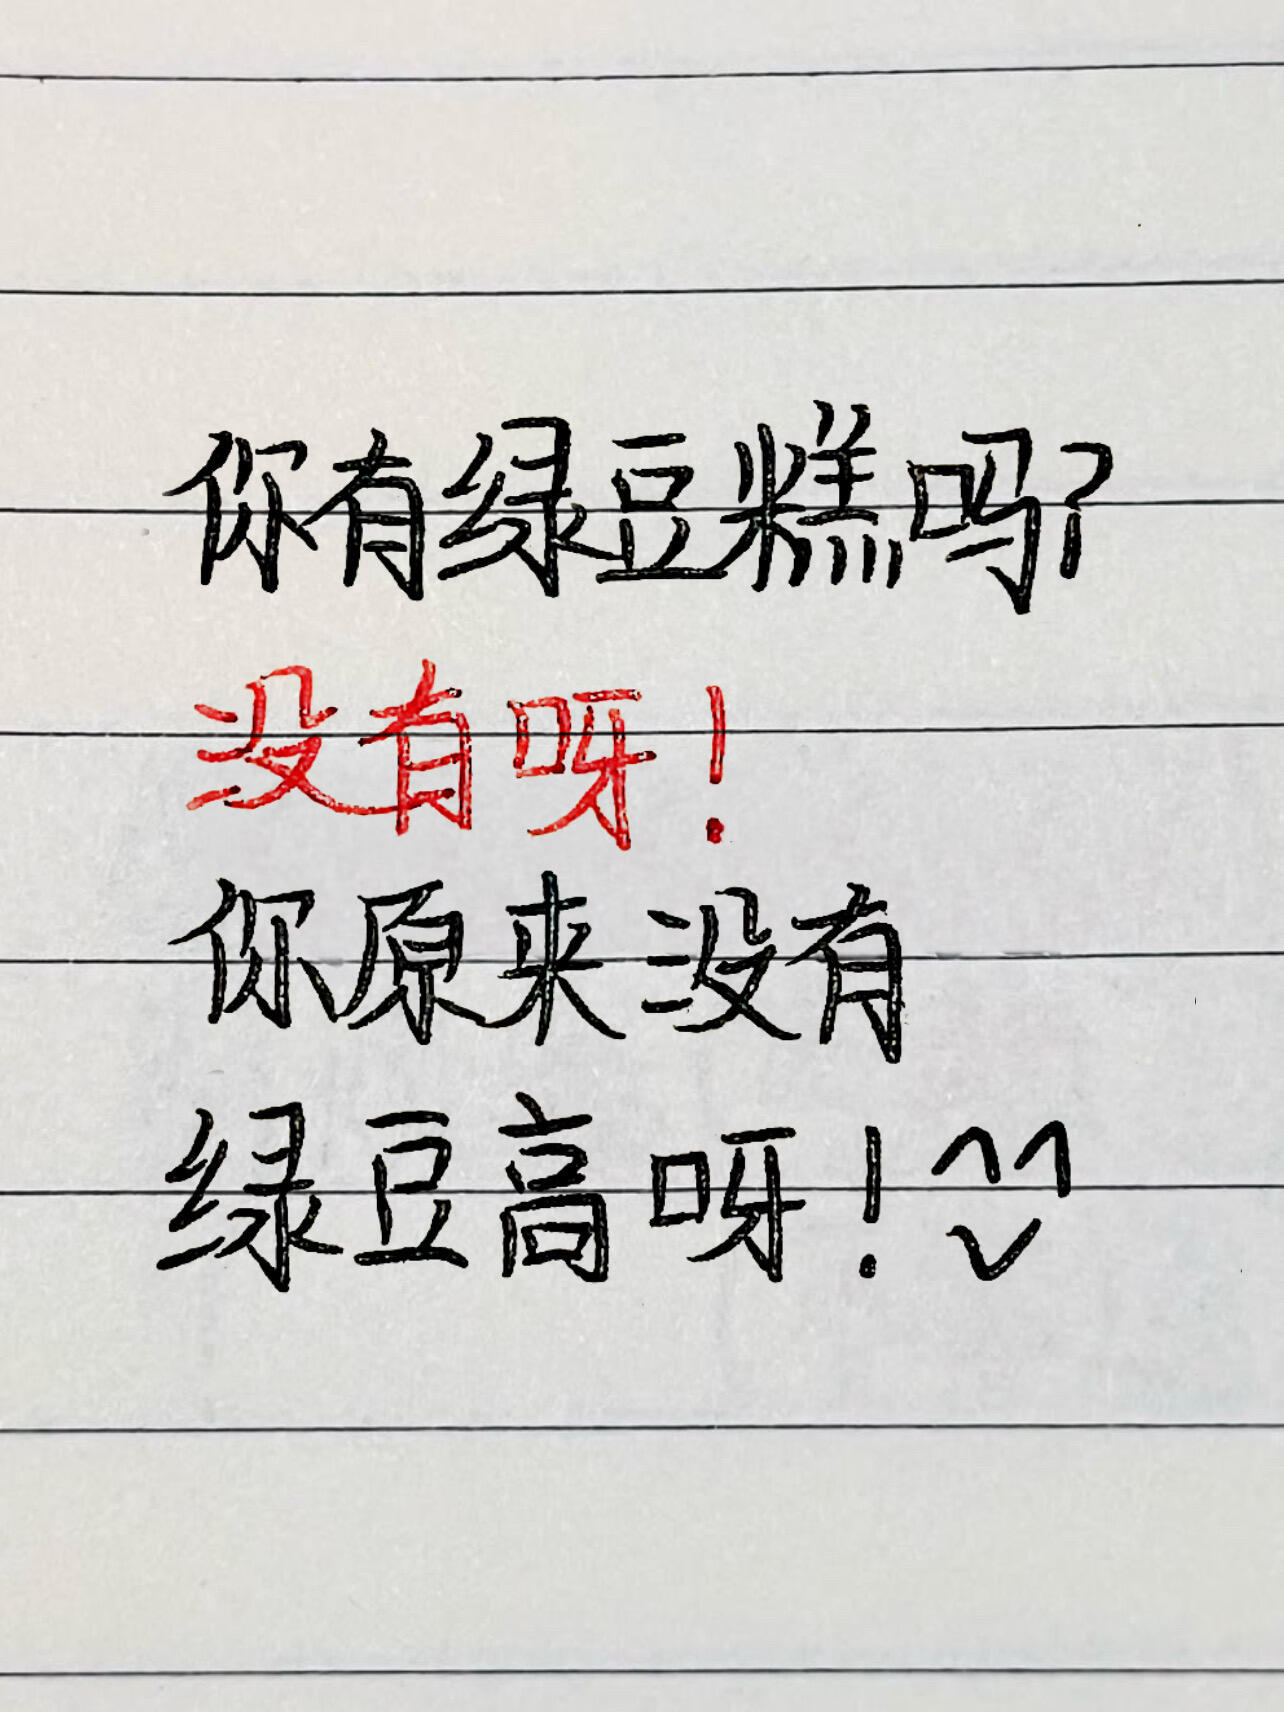 你有绿豆糕吗?
没有呀!
你原来没有
绿豆高呀!